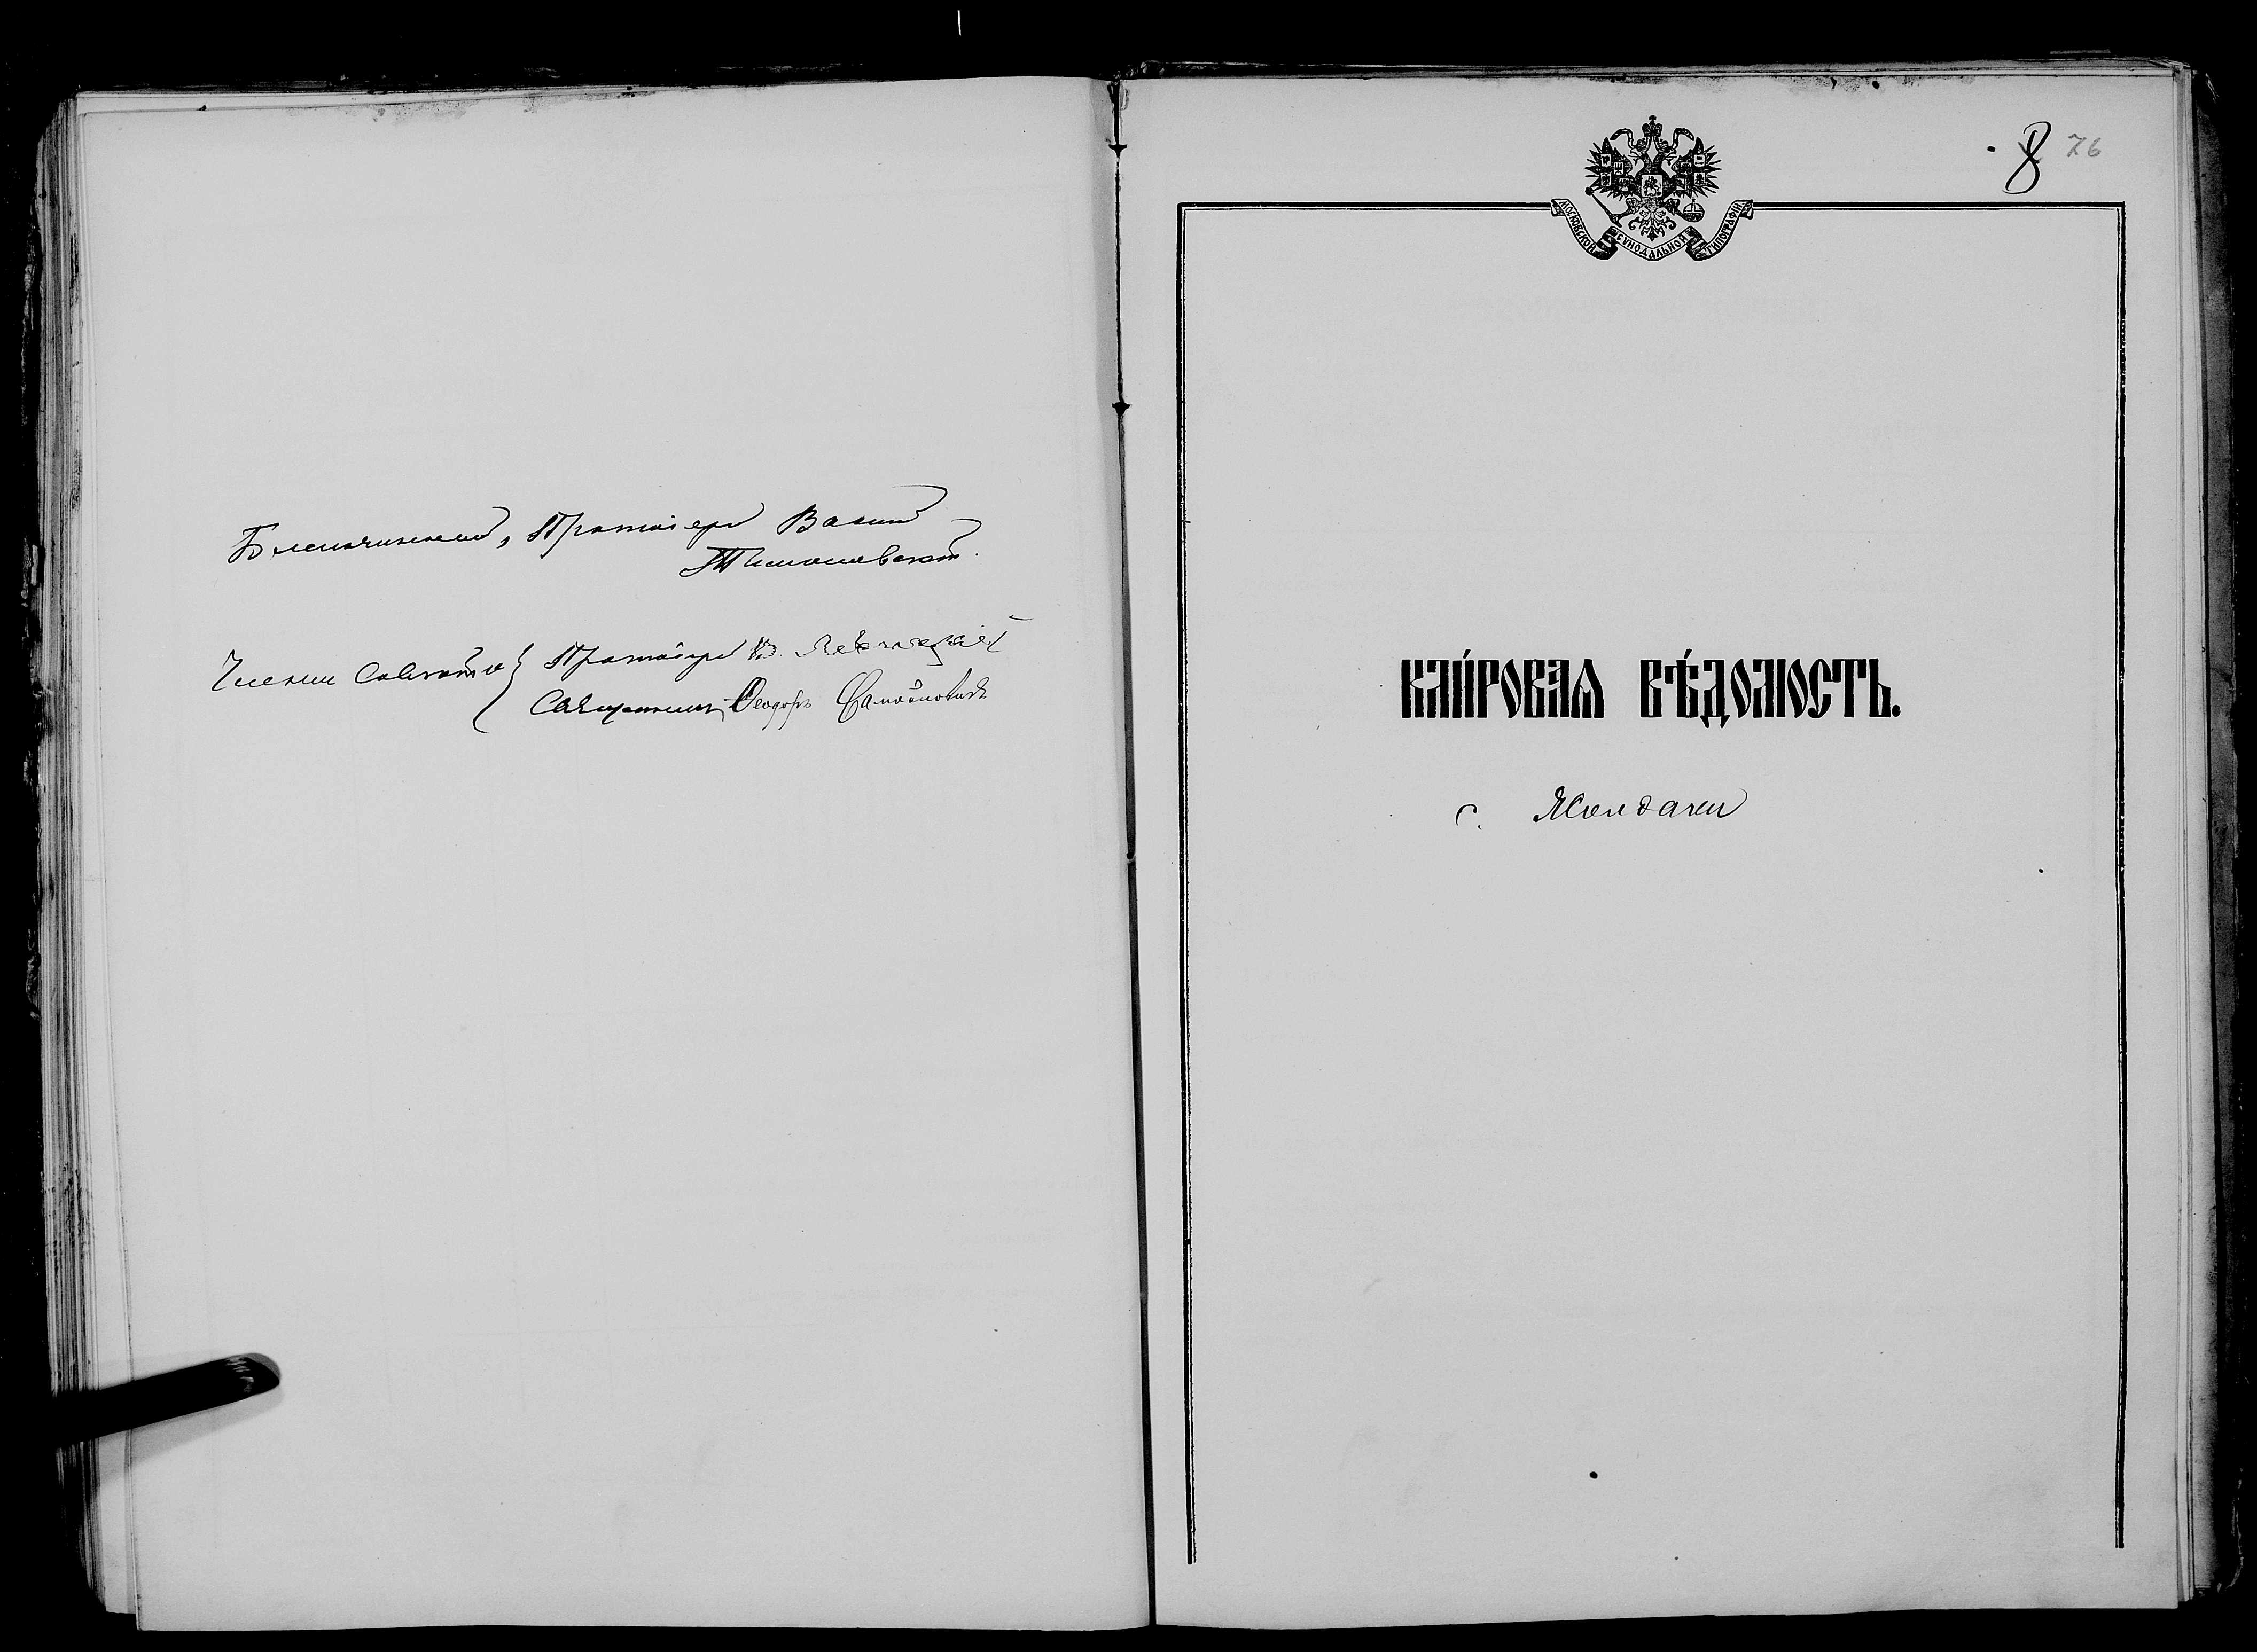 Благочинный, Протоіерей Василій
Тимошевскій.
Члены Совѣта { Протоіерей В.
Священникъ Ѳеодоръ Самойловичъ
8 76
МОСКОВСКОЙ СѴНОДАЛЬНОЙ ТИПОГРАФІИ
КЛИ́РОВАѦ ВѢ́ДОМОСТЬ.
с. Молдачи